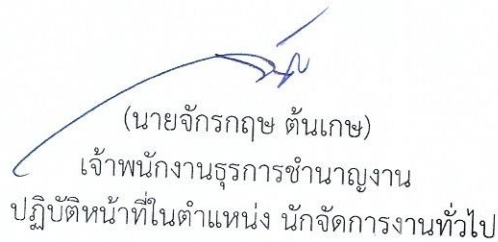 (นายจักรกฤษ ต้นเกษ)
เจ้าพนักงานธุรการชำนาญงาน
ปฏิบัติหน้าที่ในตำแหน่ง นักจัดการงานทั่วไป